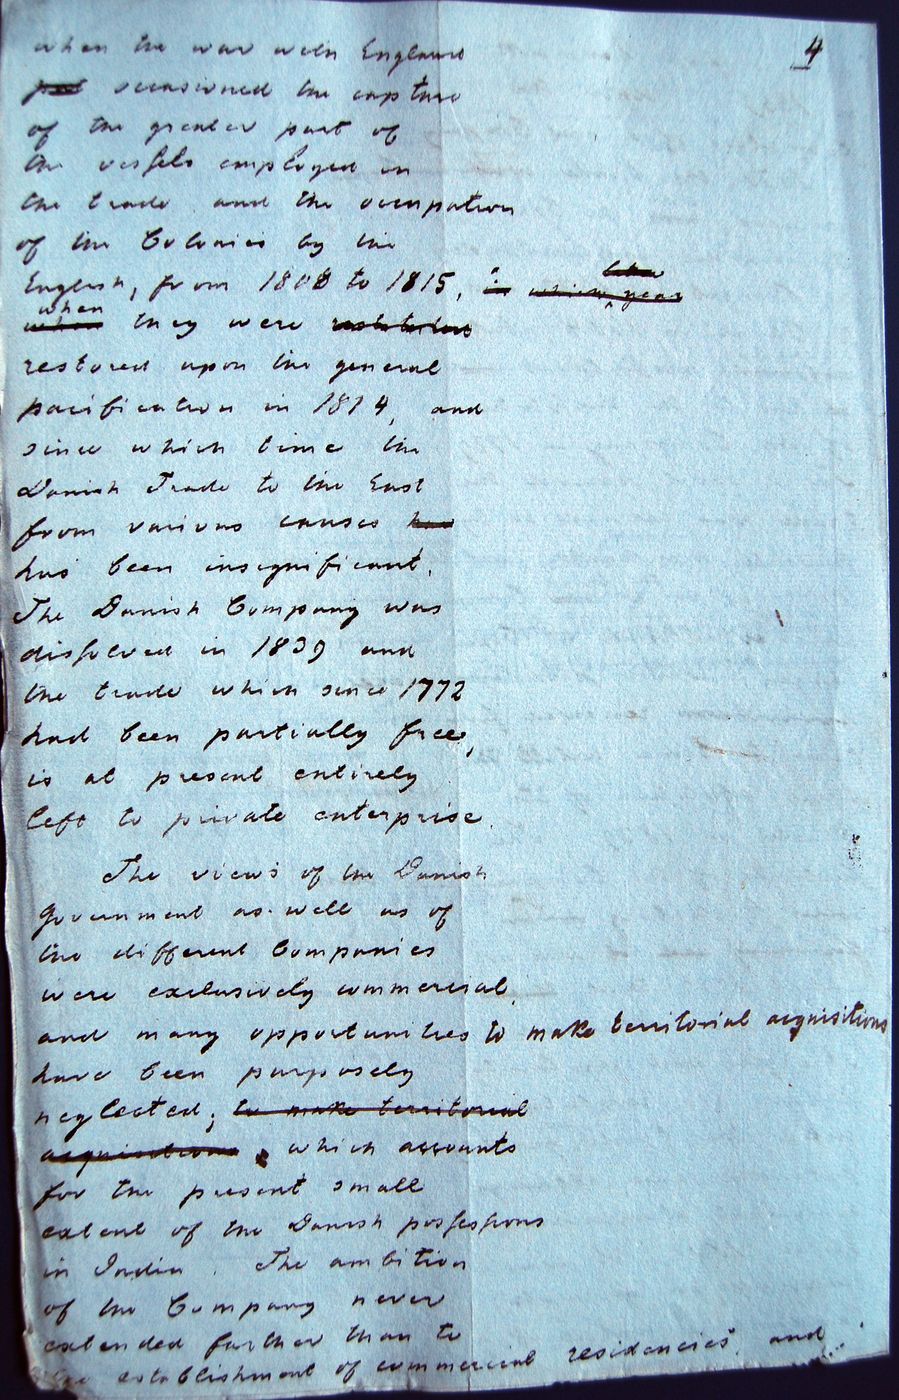 4
when the war with England
put occasioned the capture
of the greater part of
the vessels employed in
the trade and the occupation
of the Colonies by the
English, from 1808 to 1815, in which year
when
when they were
restored upon the general
pacification in 1814, and
since which time the
Danish Trade to the East
from various causes has
has been insignificant.
The Danish Company was
dissolved in 1839 and
the trade which since 1772
had been partially free,
is at present entirely
left to private enterprise.
The views of the Danish
Government as well as of
the different Companies
were exclusively commercial,
and many opportunities to make territorial acquisitions
have been purposely
neglected; to make territorial
acquisitions, which accounts
for the present small
extent of the Danish possessions
in India. The ambition
of the Company never
extended further than to
the establishment of commercial residencies, and